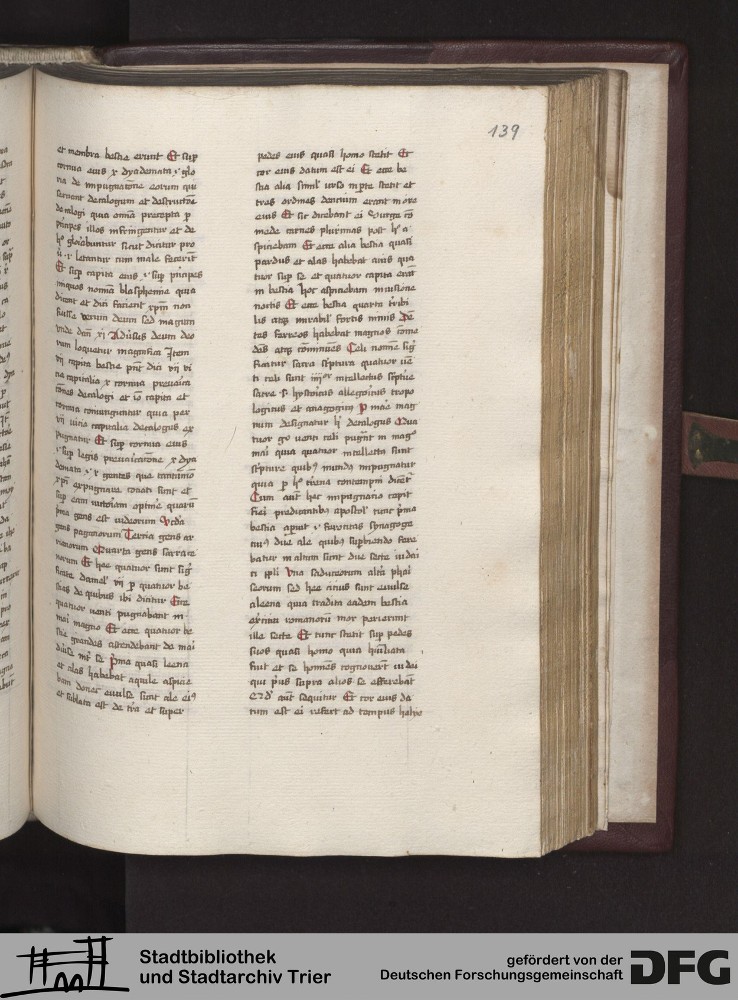 139
et membra bestie erunt Et sup
cornua eius x dyademata
ria de impugnatione eorum qui
seruent decalogum et destructore
decalogi quia omnia precepta
principes illos infringentur et de
gloriabuntur sicut dicitur pro
letantur cum male fecerint
Et sup capita eius sup principes
iniquos nomina blasphemie quia
dicent et dici facient xpm non
fuisse verum deum sed magum
vnde dan xi Aduersus deum deo
rum loquetur magnifica Item
vii capita bestie dici vii vi
cia capitalia x cornua preuarica
tiones decalogi et capita et
cornua coniunguntur quia per
vii vicia capitalia decalogus ex
pugnatur Et sup cornua eius
sup legis preuaricatione x dya
demata gentes qua
xpi expugnare conati sunt et
sup eam victoriam
prima gens est iudeorum Secunda
gens paganorum Tercia gens ar
rianorum Quarta gens sarrace
norum Et hee quatuor sunt sig
ficate daniel vii p quatuor be
stias de quibus ibi dicitur Ecce
quatuor venti pugnabant in
mari magno Et ecce quatuor be
stie grandes ascendebant de mari
diuise inter se Prima quasi leena
et alas habebat aquile aspicie
bam donec euulse sunt ale eius
et sublata est de terra et super
pedes eius quasi homo stetit Et
cor eius datum est ei Et ecce be
stia alia simil urso in parte stetit et
tres ordines dencium erant in ore
eius Et sic dicebant ei Surge co
mede carnes plurimas post hec a
spiciebam Et ecce alia bestia quasi
pardus et alas habebat auis qua
tuor sup se et quatuor capita erant
in bestia hoc aspiciebam in uisione
noctis Et ecce bestia quarta terribi
lis atque mirabil fortis nimis Den
tes ferreos habebat magnos come
dens atque comminuens Celi nomine sig
ficatur sacra scriptura quatuor ven
ti celi sunt iiiior intellectus scripture
sacre s hystoricus allegoricus tropo
logicus et anagogicus P mare mag
num designatur hic decalogus Qua
tuor ergo venti celi pugnant in magno
mari quia quatuor intellectus sunt
scripture quibus mundus impugnatur
quia p hec terrena contempni dicerent
Cum autem hec impugnacio cepit
fieri predicantibus apostolis tunc prima
bestia apparuit feritas synagoge
cuius due ale quibus superbiendo fere
batur in altum sunt due secte iudai
ci populi Vna saduceorum altera phari
seorum sed hee cicius sunt euulse
a leena quia tradita eadem bestia
exercitui romanorum mox perierunt
ille secte Et tunc stetit sup pedes
suos quasi homo quia humiliata
fuit et se homines cognouerunt iudei
qui prius supra alios se efferebant
Quod autem sequitur Et cor eius da
tum est ei refert ad tempus helye
Stadtbibliothek
und Stadtarchiv Trier
gefördert von der
Deutschen Forschungsgemeinschaft
DFG